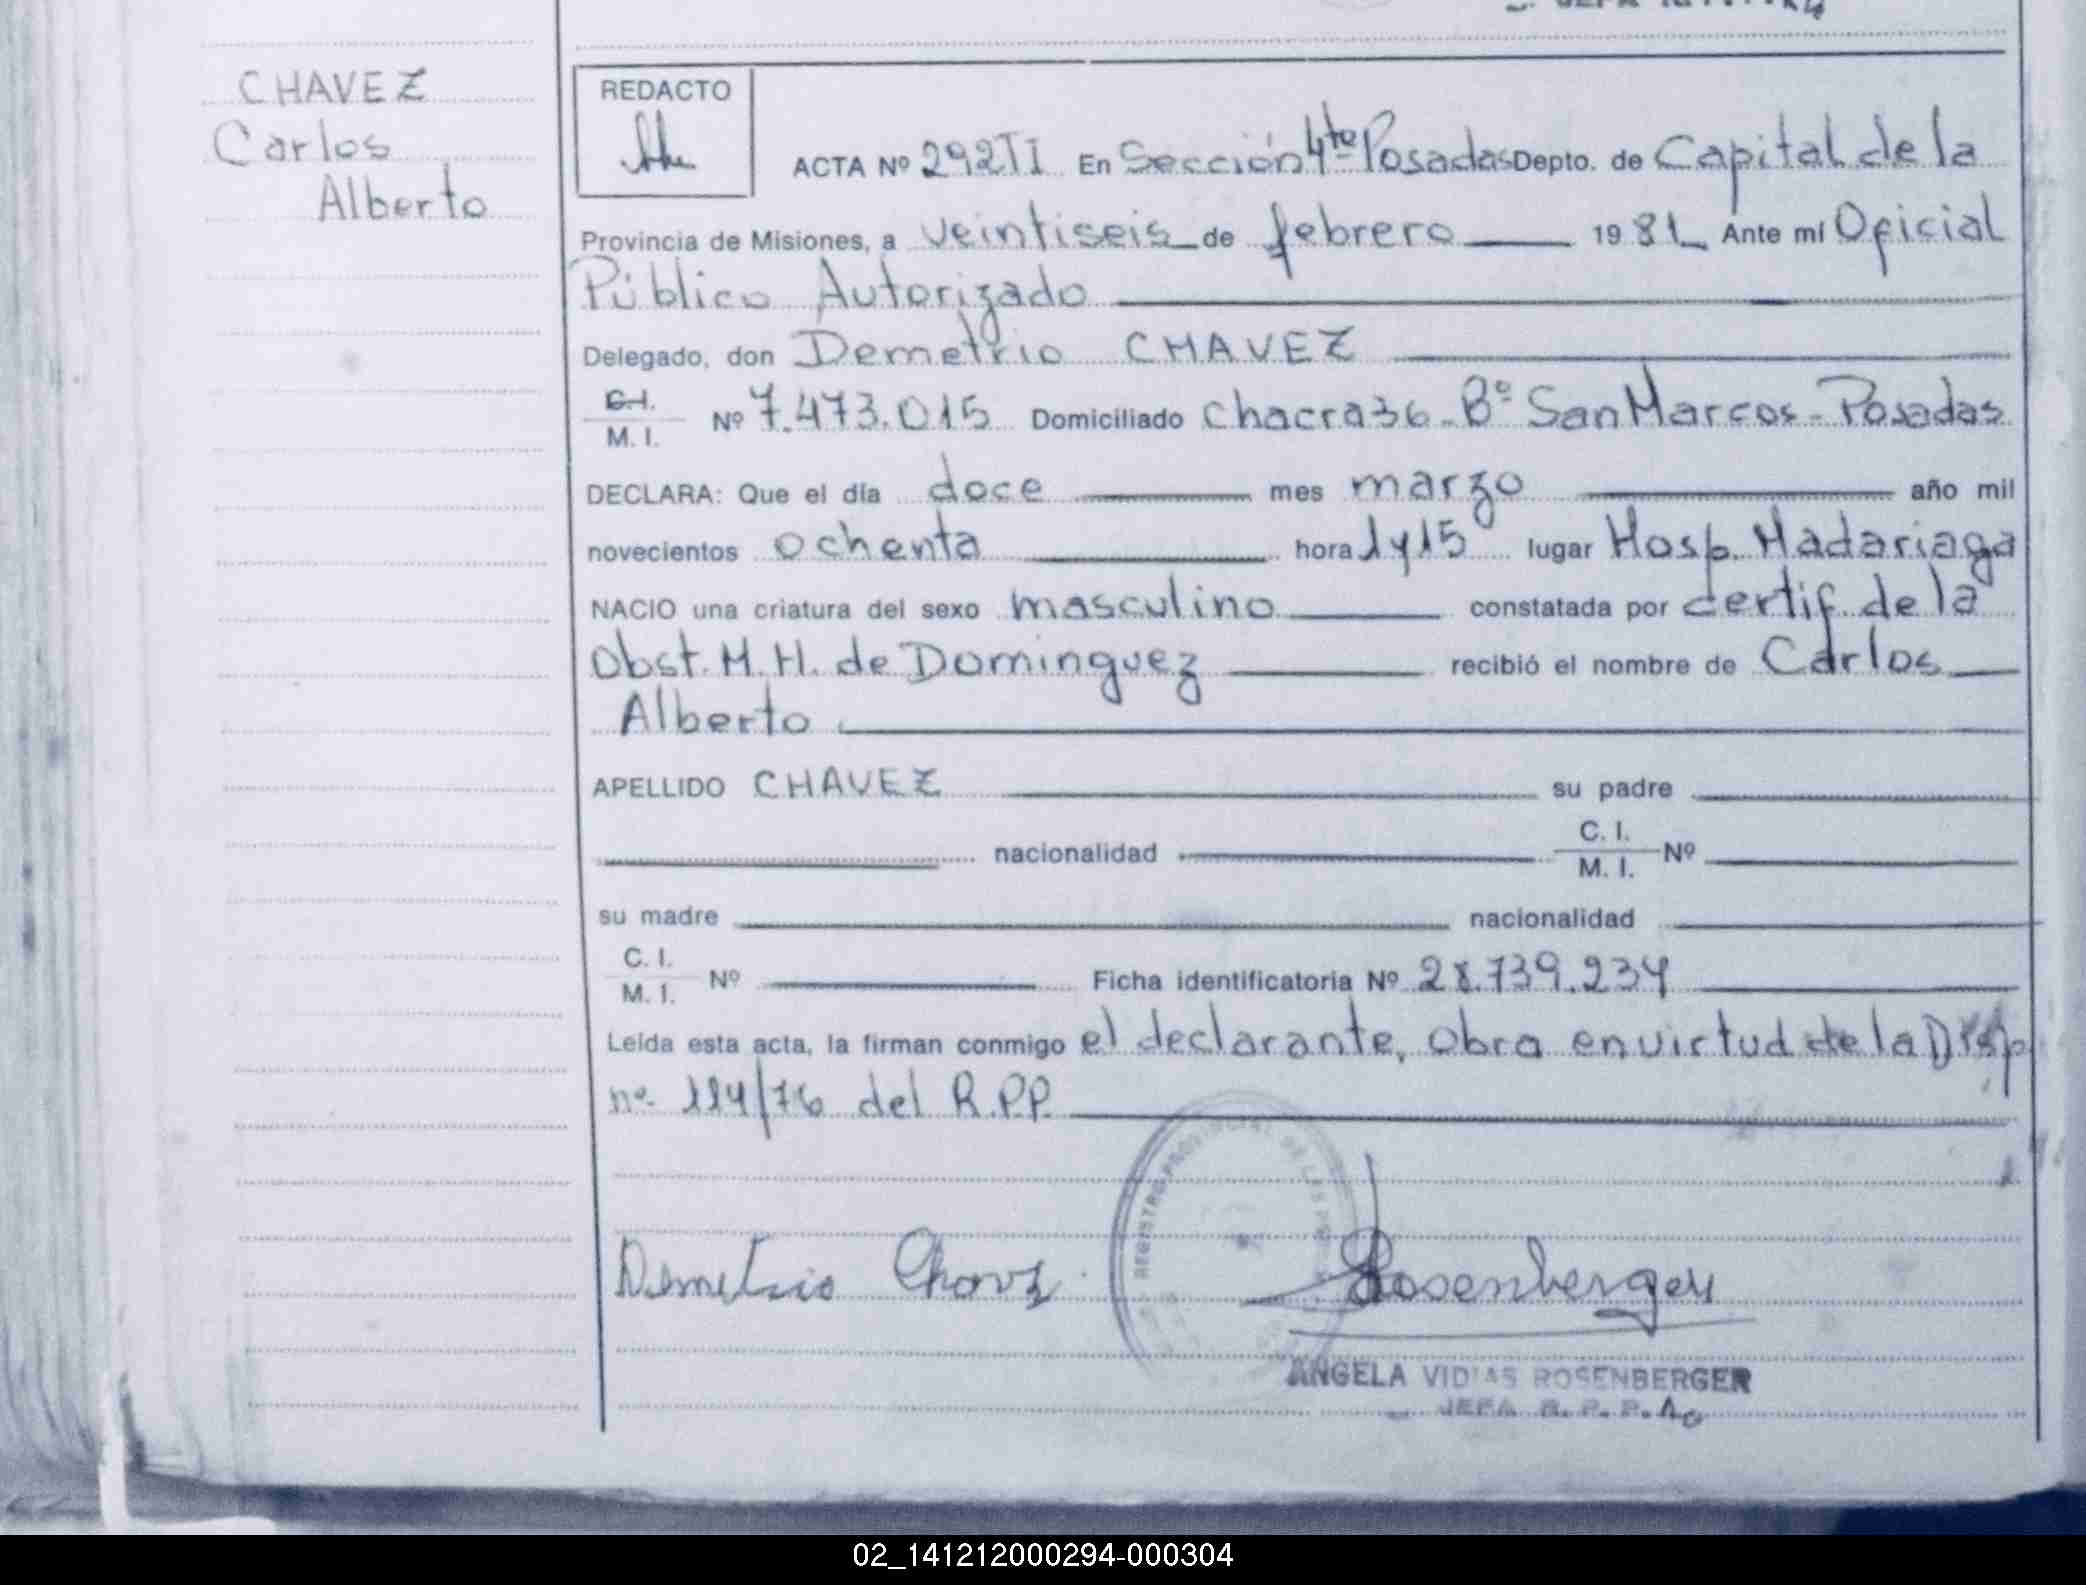 CHAVEZ
Carlos
Alberto
REDACTO
ACTA Nº 292TI En Sección 4ta Posadas Depto. de Capital de la
Provincia de Misiones, a veintiseis de febrero 1981 Ante mí Oficial
Público Autorizado
Delegado, don Demetrio CHAVEZ
C.I.
M. I. Nº 7.473.015 Domiciliado chacra 36 - Bº San Marcos - Posadas
DECLARA: Que el día doce mes marzo año mil
novecientos ochenta hora 1 y 15 lugar Hosp. Madariaga
NACIO una criatura del sexo masculino constatada por certif. de la
Obst. M. H. de Dominguez recibió el nombre de Carlos
Alberto
APELLIDO CHAVEZ su padre
nacionalidad C. I. M. I. Nº
su madre nacionalidad
C. I. M. I. Nº Ficha identificatoria Nº 28.739.234
Leída esta acta, la firman conmigo el declarante, obra en virtud de la Disp
nº 114/76 del R.P.P.
REGISTRO PROVINCIAL DE LAS
Demetrio Chavez
Rosenberger
ANGELA VIDIAS ROSENBERGER
JEFA R. P. P.
02_141212000294-000304